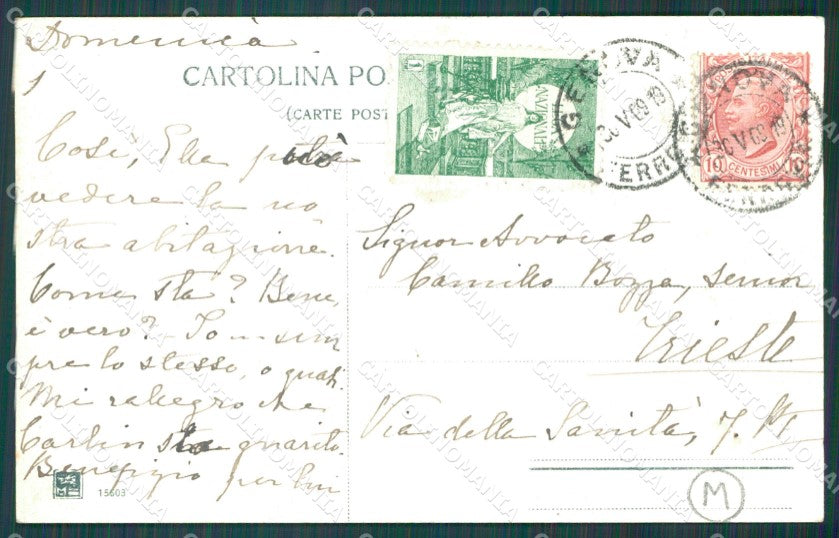 Domenica
1
CARTOLINA PO
(CARTE POST
Così, Ella può
vedere la no
stra abitazione.
Come sta? Bene,
è vero? Io... sem
pre lo stesso, o quasi.
Mi rallegro che
Carlin sta guarito.
per lui
15603
1
GENOVA
FERR
GENOVA
10 CENTESIMI 10
Signor Avvocato
Camillo Bozza, senior
Trieste
Via della Sanità, 7.
M
CARTOLINOMANIA